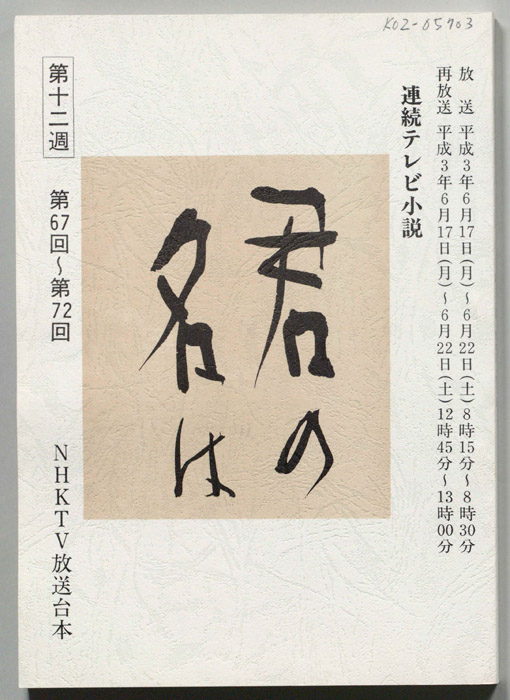 K02-05703
放 送 平成3年6月17日(月)～6月22日(土)8時15分～8時30分
再放送 平成3年6月17日(月)～6月22日(土)12時45分～13時00分
連続テレビ小説
君の
名は
第十二週 第67回～第72回
NHKTV放送台本